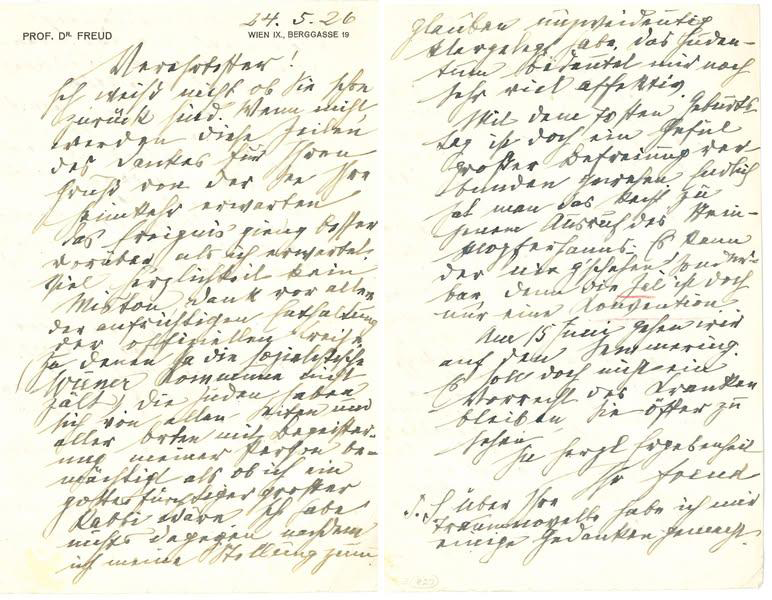 24.5.26
PROF. DR. FREUD
WIEN IX., BERGGASSE 19
Verehrtester!
Ich weiß nicht ob Sie schon
zurück sind. Wenn nicht
werden diese Zeilen
des Dankes für Ihren
Gruß von der See Ihre
Heimkehr erwarten
Das Ereignis gieng besser
vorüber als ich erwartet.
Viel Herzlichkeit kein
Miston, Dank vor allem
der aufrichtigen Enthaltung
der offiziellen Kreise
(zu denen ja die sozialistische
Wiener Kommune nicht
zält) Die Juden haben
sich von allen Seiten und
aller Orten mit Begeister-
ung meiner Person be-
mächtigt als ob ich ein
gottesfürchtiger grosser
Rabbi wäre. Ich habe
nichts dagegen nachdem
ich meine Stellung zum
Glauben unzweideutig
klargelegt habe, das Juden-
tum bedeutet mir noch
sehr viel affektiv.
Mit dem 70sten Geburts-
tag ist doch ein Gefül
grosser Befreiung ver-
bunden gewesen. Endlich
hat man das Recht zu
jenem Ausruf des Stein-
klopferhanns: Es kann
der nix g'schehen! Sonder-
bar, denn die Zal ist doch
nur eine Konvention
Am 15 Juni gehen wir
auf den Semmering.
Es soll doch nicht ein
Vorrecht des Kranken
bleiben, Sie öfter zu
sehen
In herzl Ergebenheit
Ihr Freud
P.S. Über Ihre
Traumnovelle habe ich mir
einige Gedanken gemacht.